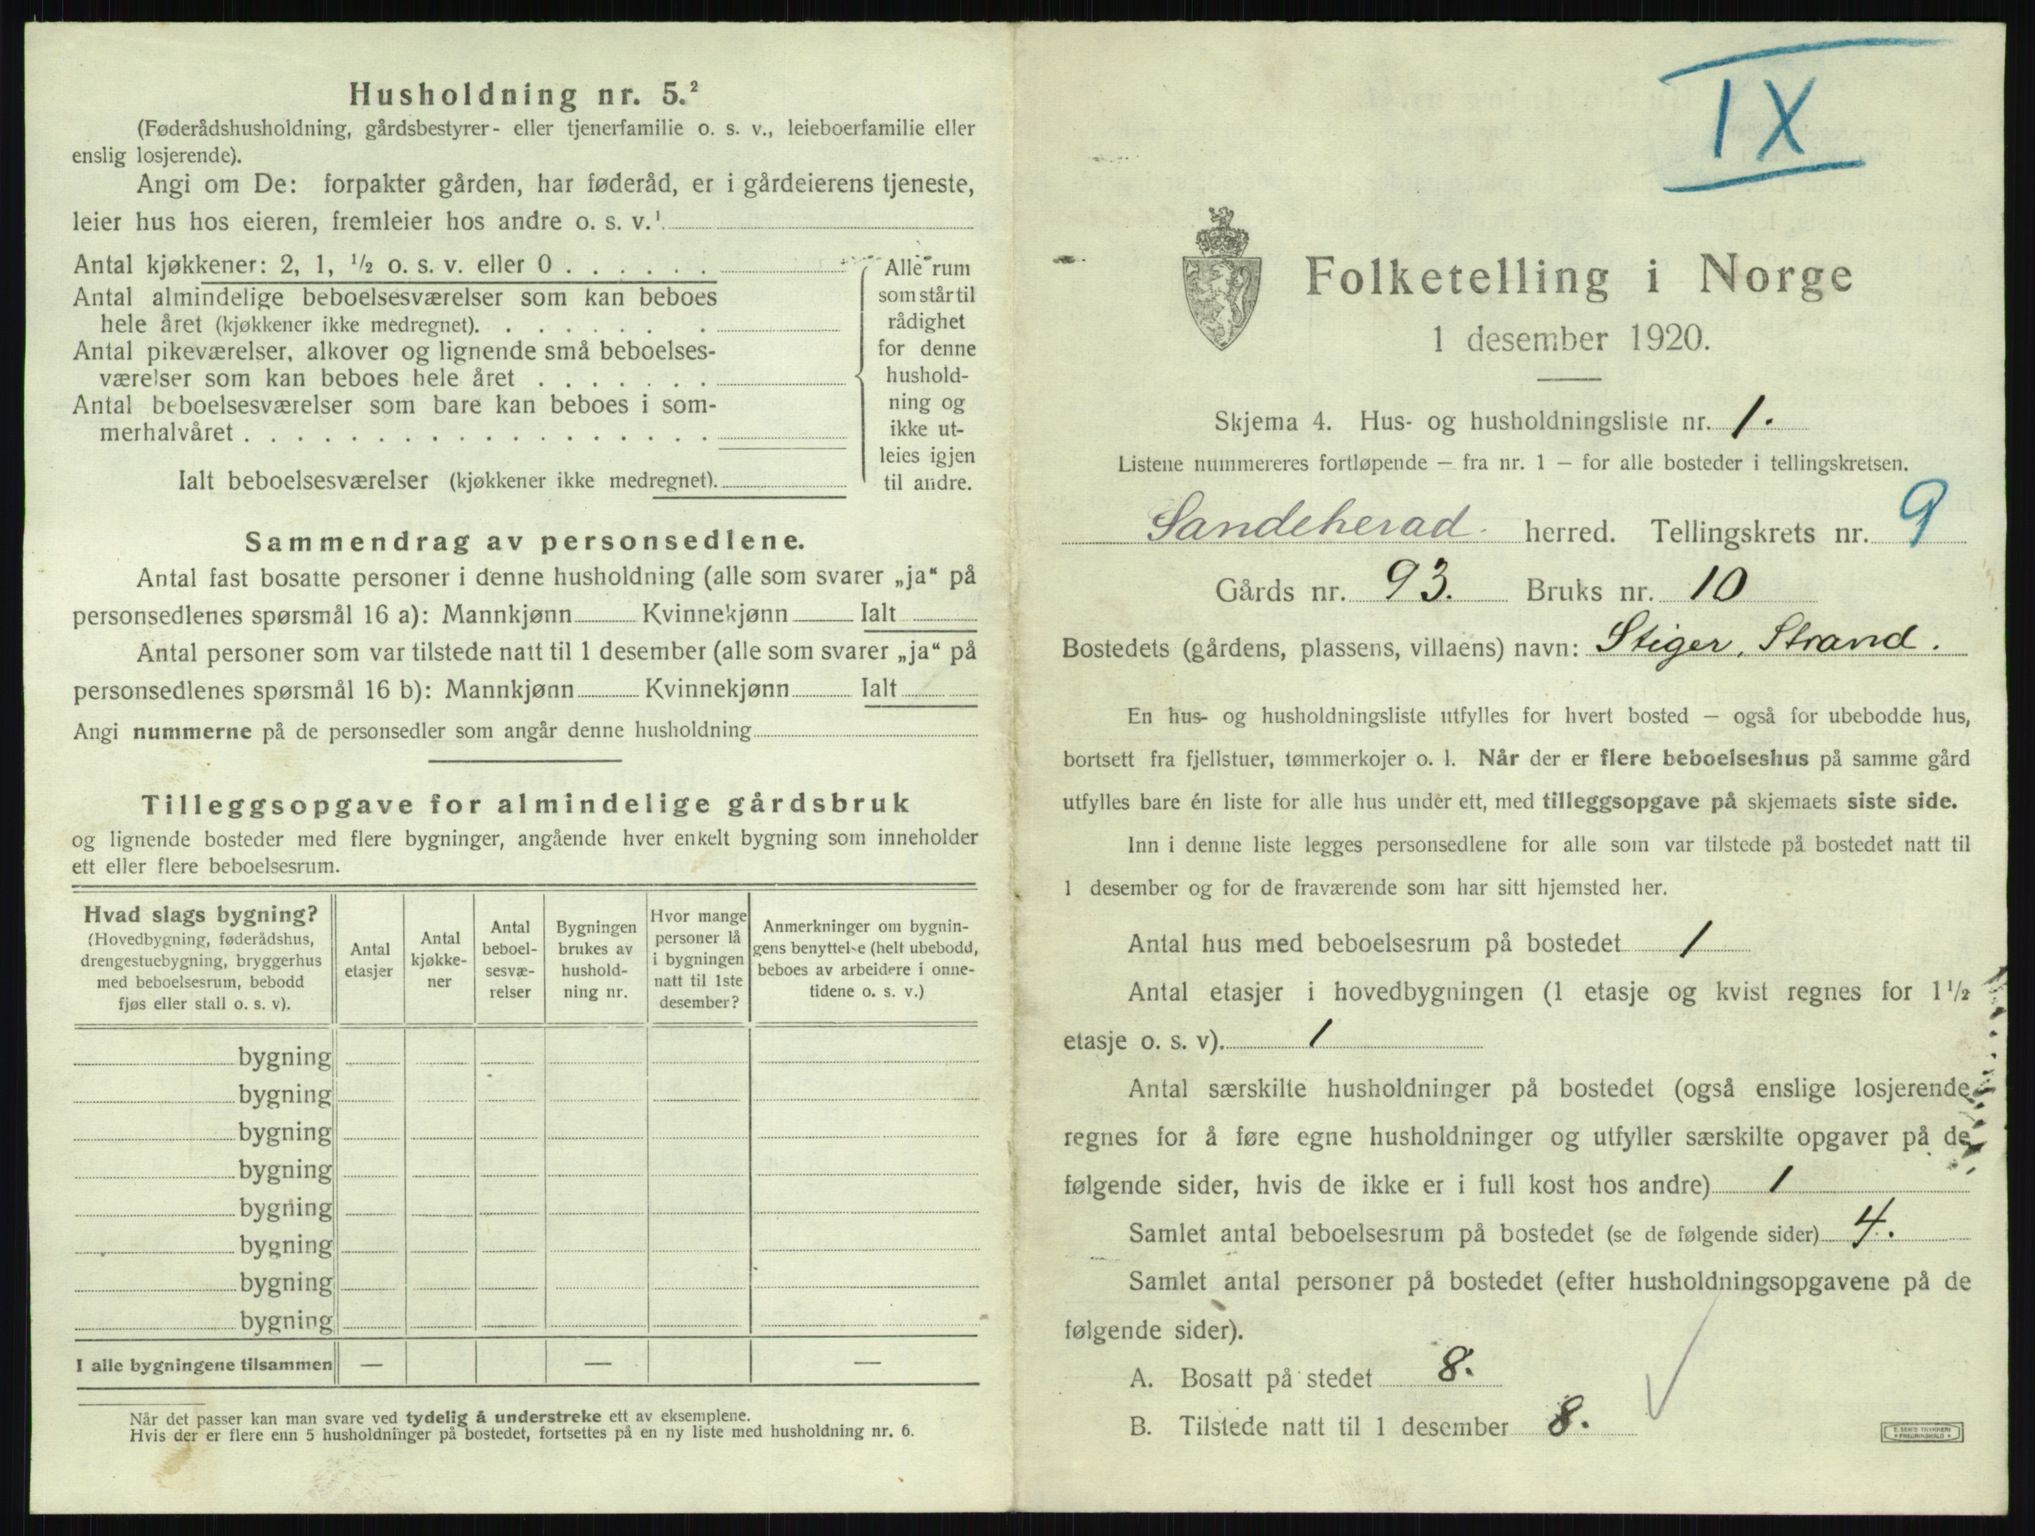 Husholdning nr. 5.²
(Føderådshusholdning, gårdsbestyrer- eller tjenerfamilie o. s. v., leieboerfamilie eller
enslig losjerende).
Angi om De: forpakter gården, har føderåd, er i gårdeierens tjeneste,
leier hus hos eieren, fremleier hos andre o. s. v.¹
Antal kjøkkener: 2, 1, ½ o. s. v. eller 0 . . . . . .
Antal almindelige beboelsesværelser som kan beboes
hele året (kjøkkener ikke medregnet). . . . . . . .
Antal pikeværelser, alkover og lignende små beboelses-
værelser som kan beboes hele året . . . . . . .
Antal beboelsesværelser som bare kan beboes i som-
merhalvåret . . . . . . . . . . . . . . . . . .
Ialt beboelsesværelser (kjøkkener ikke medregnet).
Alle rum
som står til
rådighet
for denne
hushold-
ning og
ikke ut-
leies igjen
til andre.
Sammendrag av personsedlene.
Antal fast bosatte personer i denne husholdning (alle som svarer „ja“ på
personsedlenes spørsmål 16 a): Mannkjønn Kvinnekjønn Ialt
Antal personer som var tilstede natt til 1 desember (alle som svarer „ja“ på
personsedlenes spørsmål 16 b): Mannkjønn Kvinnekjønn Ialt
Angi nummerne på de personsedler som angår denne husholdning
Tilleggsopgave for almindelige gårdsbruk
og lignende bosteder med flere bygninger, angående hver enkelt bygning som inneholder
ett eller flere beboelsesrum.
Hvad slags bygning?
(Hovedbygning, føderådshus,
drengestuebygning, bryggerhus
med beboelsesrum, bebodd
fjøs eller stall o. s. v).
Antal
etasjer
Antal
kjøkke-
ner
Antal
beboel-
sesvæ-
relser
Bygningen
brukes av
hushold-
ning nr.
Hvor mange
personer lå
i bygningen
natt til 1ste
desember?
Anmerkninger om bygnin-
gens benyttelse (helt ubebodd,
beboes av arbeidere i onne-
tidene o. s. v.)
bygning
bygning
bygning
bygning
bygning
bygning
bygning
bygning
I alle bygningene tilsammen — — —
Når det passer kan man svare ved tydelig å understreke ett av eksemplene.
Hvis der er flere enn 5 husholdninger på bostedet, fortsettes på en ny liste med husholdning nr. 6.
IX
Folketelling i Norge
1 desember 1920.
Skjema 4. Hus- og husholdningsliste nr. 1.
Listene nummereres fortløpende – fra nr. 1 – for alle bosteder i tellingskretsen.
Sandeherad herred. Tellingskrets nr. 9
Gårds nr. 93. Bruks nr. 10
Bostedets (gårdens, plassens, villaens) navn: Stiger, Strand.
En hus- og husholdningsliste utfylles for hvert bosted – også for ubebodde hus,
bortsett fra fjellstuer, tømmerkojer o. l. Når der er flere beboelseshus på samme gård
utfylles bare én liste for alle hus under ett, med tilleggsopgave på skjemaets siste side.
Inn i denne liste legges personsedlene for alle som var tilstede på bostedet natt til
1 desember og for de fraværende som har sitt hjemsted her.
Antal hus med beboelsesrum på bostedet 1
Antal etasjer i hovedbygningen (1 etasje og kvist regnes for 1½
etasje o. s. v). 1
Antal særskilte husholdninger på bostedet (også enslige losjerende
regnes for å føre egne husholdninger og utfyller særskilte opgaver på de
følgende sider, hvis de ikke er i full kost hos andre) 1
Samlet antal beboelsesrum på bostedet (se de følgende sider) 4.
Samlet antal personer på bostedet (efter husholdningsopgavene på de
følgende sider).
A. Bosatt på stedet 8.
B. Tilstede natt til 1 desember 8.